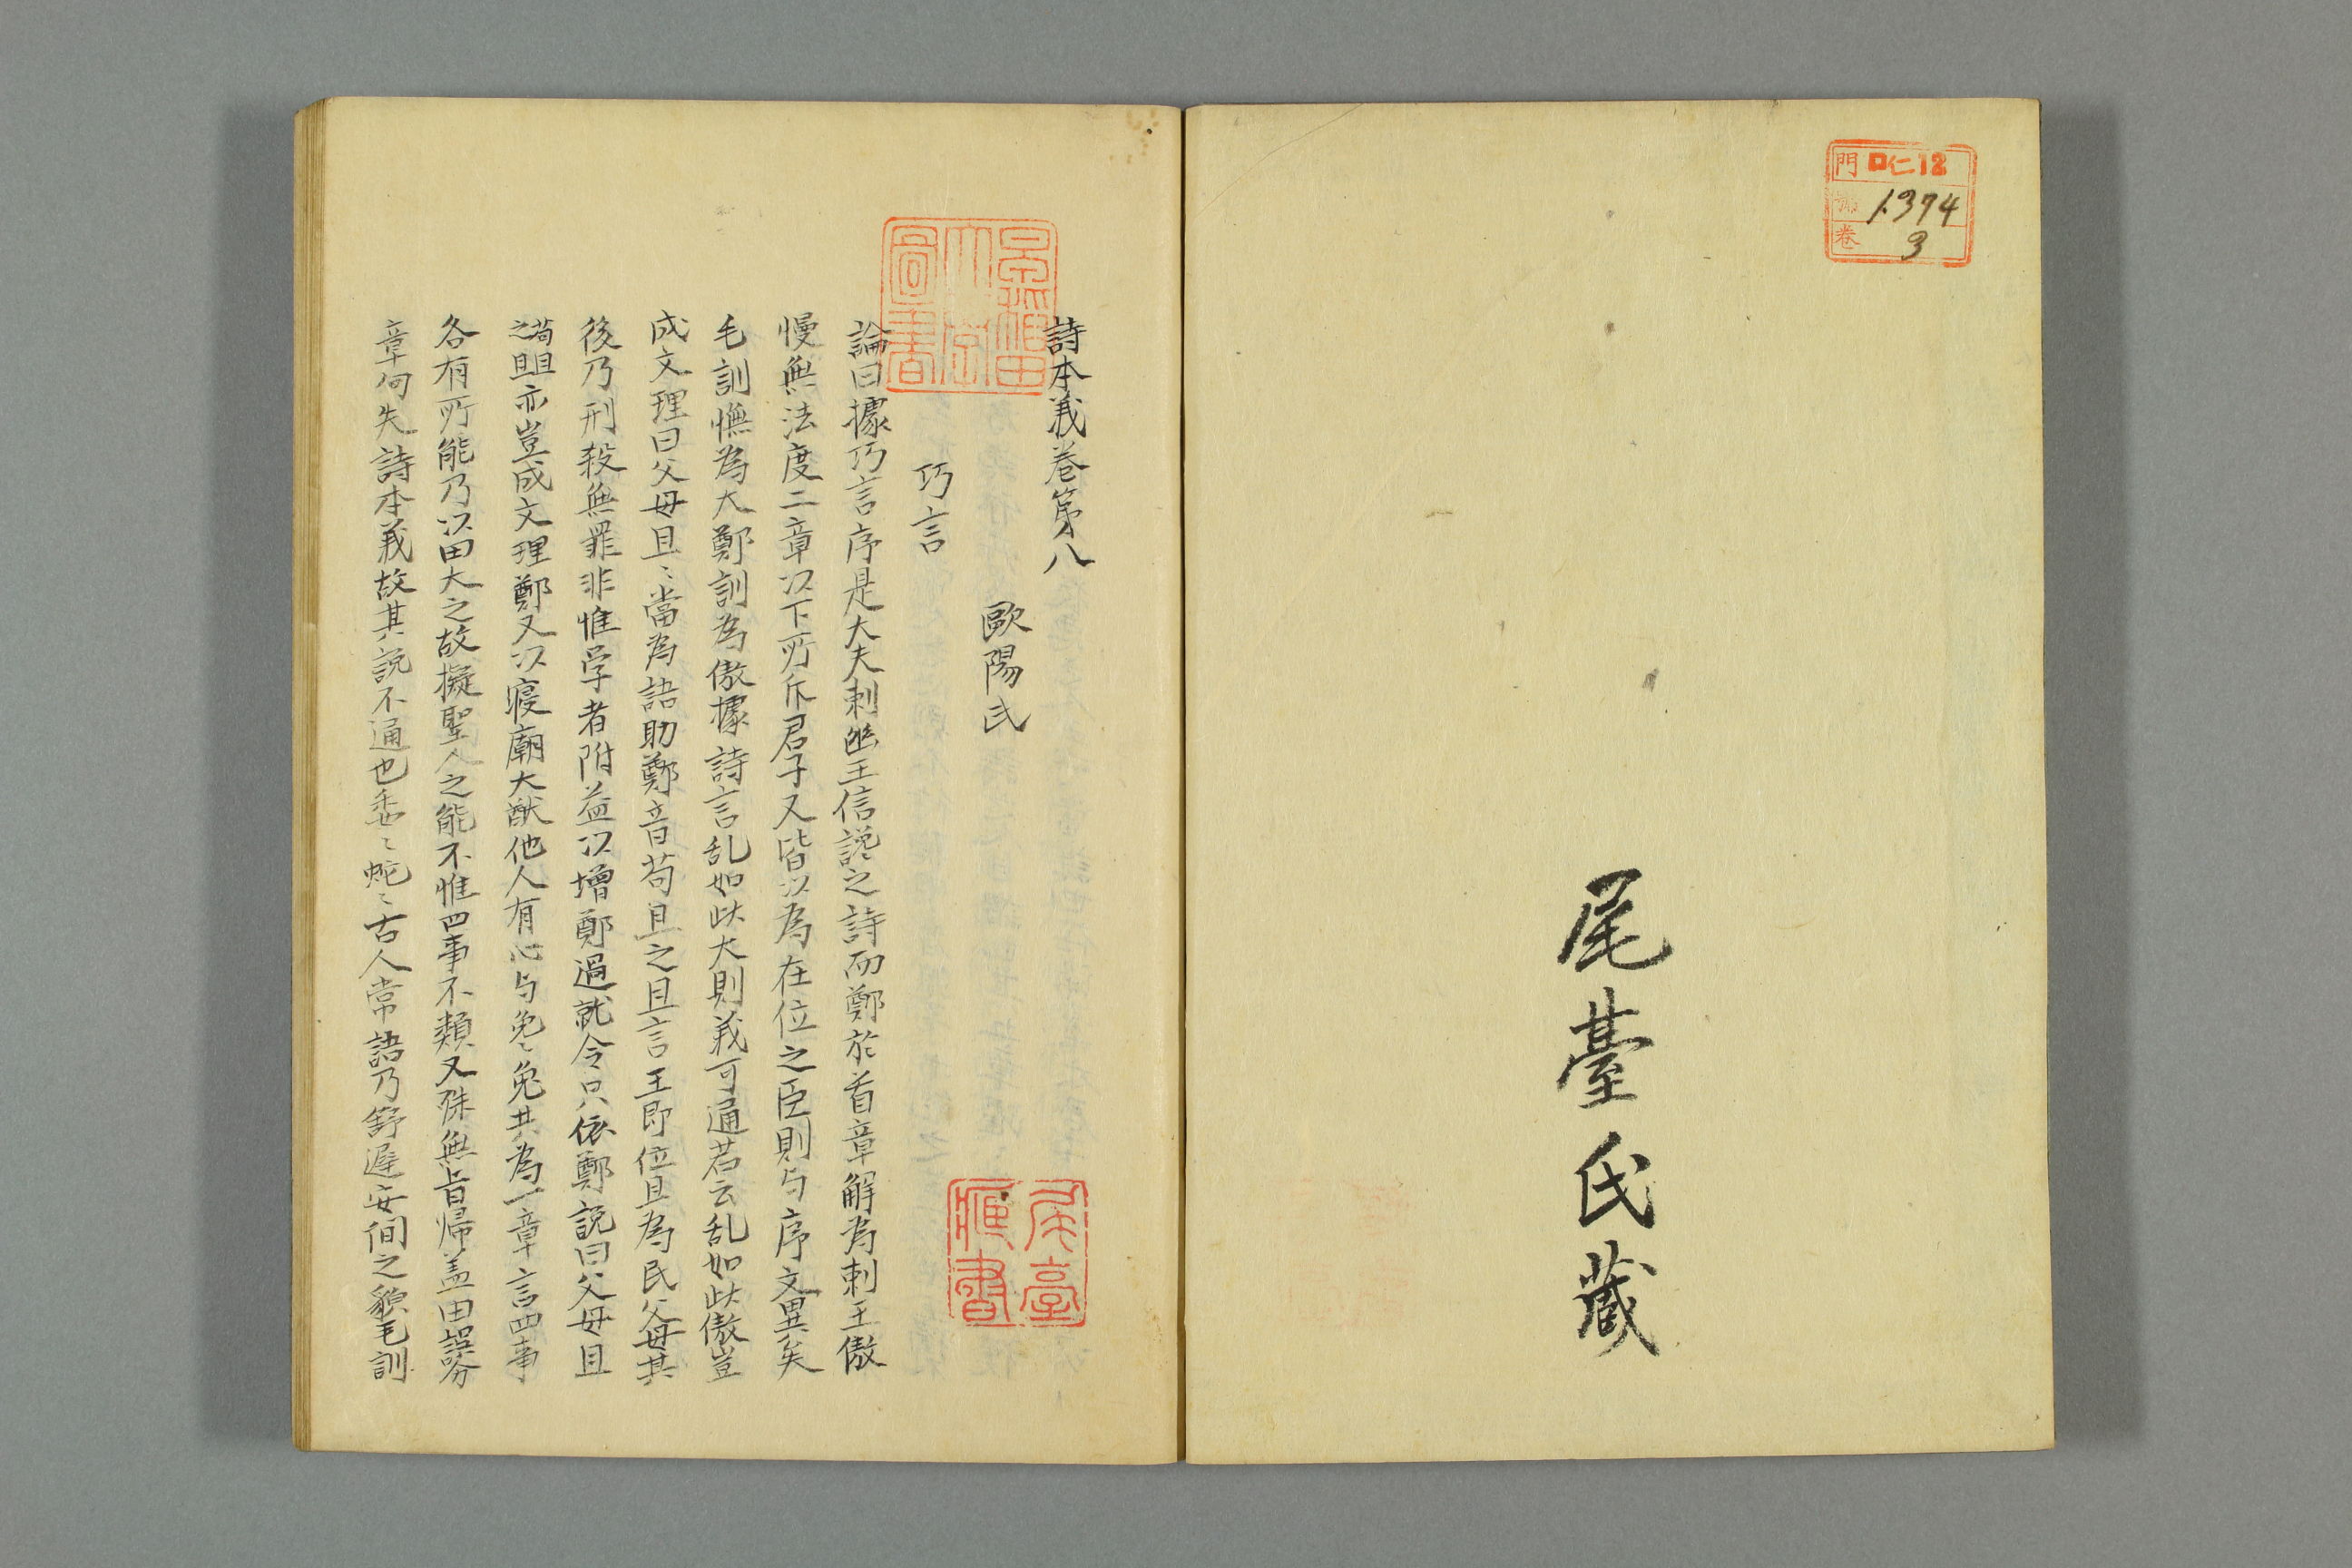 門 ロ仁12
號 1374
卷 3
尾臺氏蔵
早稲田大學圖書
詩本義巻第八
歐陽氏
巧言
論曰據巧言序是大夫刺幽王信讒之詩而鄭於首章解為刺王傲
慢無法度二章以下所斥君子又皆以為在位之臣則与序文異矣
毛訓憮為大鄭訓為傲據詩言乱如此大則義可通若云乱如此傲豈
成文理曰父母且〻當為語助鄭音苟且之且言王即位且為民父母其
後乃刑殺無罪非惟学者附益以增鄭過就令只依鄭說曰父母且
苟且之且亦豈成文理鄭又以寝廟大猷他人有心与毚〻兔共為一章言四事
各有所能乃以田犬之故擬聖人之能不惟四事不類又殊無旨帰盖由誤分
章句失詩本義故其説不通也委〻蛇〻古人常語乃舒遅安閒之貌毛訓
尾臺蔵書